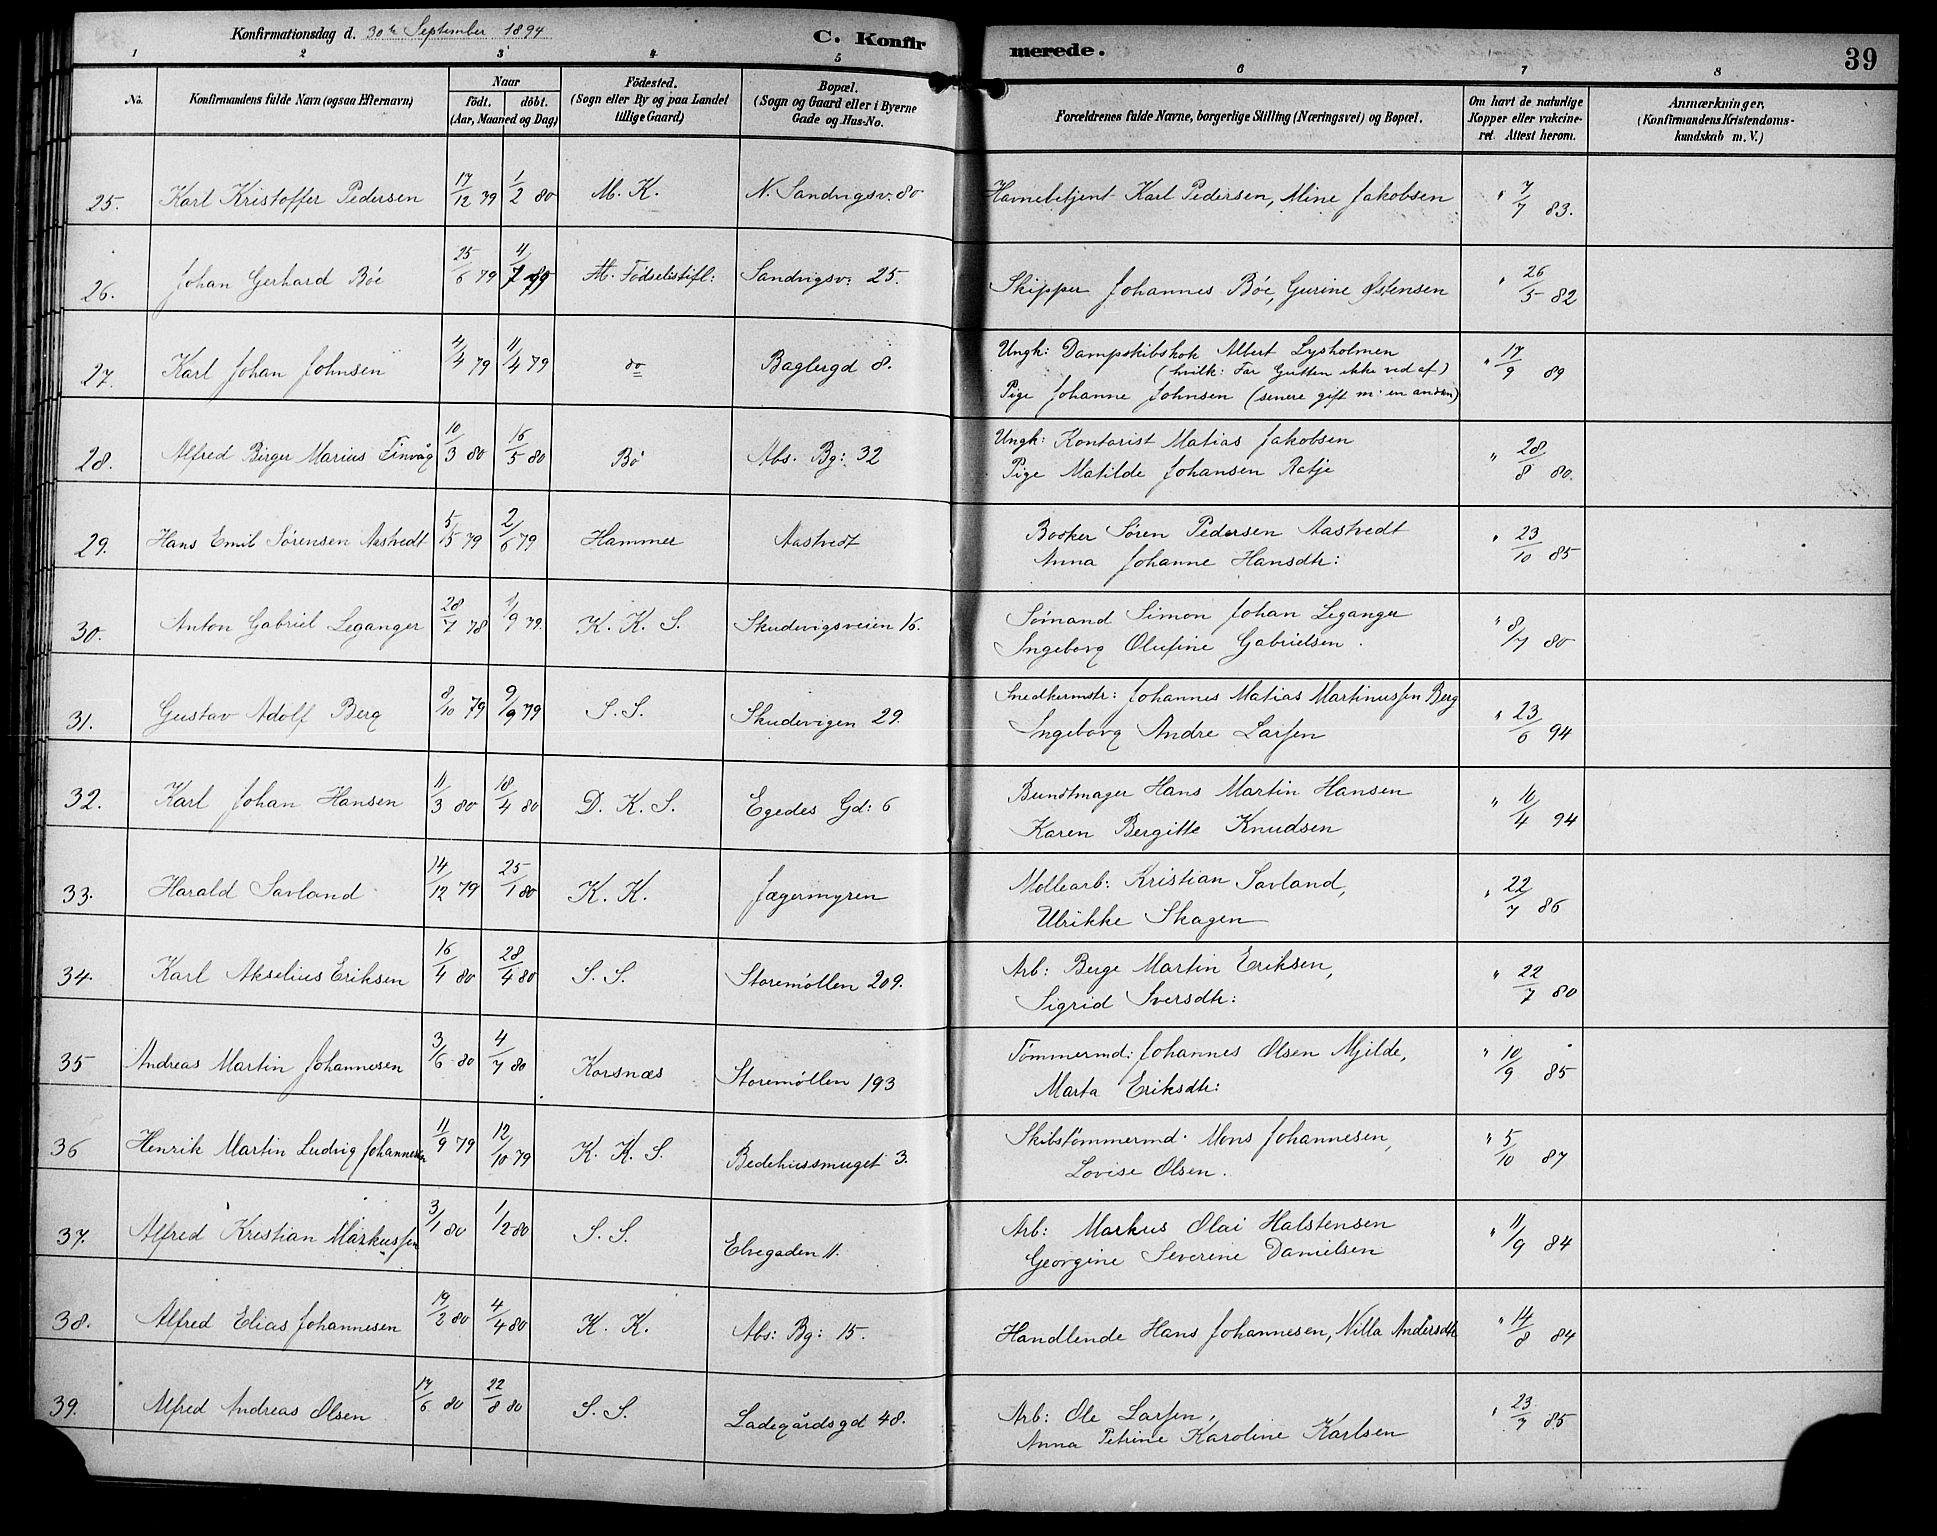 Konfirmationsdag d. 30te September 1894 C. Konfirmerede. 39
1 2 3 4 5 6 7 8
No. Konfirmandens fulde Navn (ogsaa Efternavn) Naar födt. döbt. (Aar, Maaned og Dag) Födested. (Sogn eller By og paa Landet tillige Gaard) Bopæl. (Sogn og Gaard eller i Byerne Gade og Hus-No. Forældrenes fulde Navne, borgerlige Stilling (Næringsvei) og Bopæl. Om havt de naturlige Kopper eller vakcineret. Attest herom. Anmærkninger. (Konfirmandens Kristendomskundskab m. V.)
25. Karl Kristoffer Pedersen 17/12 79 1/2 80 M. K. N. Sandvigsv. 80 Havnebetjent Karl Pedersen, Mine Jakobsen " 7/7 83.
26. Johan Gerhard Böe 25/6 79 4/7 79 M. Födselsstift: Sandvigsv: 25. Skipper Johannes Böe, Gurine Østensen " 26/5 82
27. Karl Johan Johnsen 4/4 79 11/4 79 do Baglergd 8. Ungk: Dampskibskok Albert Lysholmen
(hvilk: Far Gutten ikke ved af)
Pige Johanne Johnsen (senere gift m: en anden) " 17/9 89
28. Alfred Birger Marius Finvåg 10/3 80 16/5 80 Bö Abs. Bg: 32 Ungk: Kontorist Matias Jakobsen
Pige Matilde Johansen Ratje " 28/8 80.
29. Hans Emil Sørensen Aastvedt 5/5 79 2/6 79 Hammer Aastvedt Bødker Søren Pedersen Aastvedt
Anna Johanne Hansdtr: " 23/10 85
30. Anton Gabriel Leganger 28/7 78 1/9 79. K. K. S. Skudevigsveien 16. Sømand Simon Johan Leganger
Ingeborg Olufine Gabrielsen. " 8/7 80
31. Gustav Adolf Berg 9/10 79 9/9 79 S. S. Skudevigen 29. Snedkermstr: Johannes Matias Martinussen Berg
Ingeborg Andre Larsen " 23/6 94
32. Karl Johan Hansen 11/3 80 18/4 80 D. K. S. Egedes Gd: 6 Bundtmager Hans Martin Hansen
Karen Bergitte Knudsen " 16/4 94
33. Harald Savland 14/12 79 25/1 80 K. K. Jægermyren Møllearb: Kristian Savland,
Ulrikke Skagen " 22/7 86
34. Karl Akselius Eriksen 16/4 80 28/4 80 S. S. Storemöllen 209. Arb: Berge Martin Eriksen,
Sigrid Iversdtr: " 22/7 80
35 Andreas Martin Johannesen 3/6 80 4/7 80 Korsnæs Storemöllen 193 Tømmermd: Johannes Olsen Mjelde,
Marta Eriksdtr: " 10/9 85
36 Henrik Martin Ludvig Johannesen 11/9 79 12/10 79 K. K. S. Bedehussmuget 3. Skibstømmermd. Mons Johannesen,
Lovise Olsen. " 5/10 87
37. Alfred Kristian Markussen 3/1 80 1/2 80 S. S. Elvegaden 11. Arb: Markus Olai Halstensen
Georgine Severine Danielsen " 11/9 84
38. Alfred Elias Johannesen 19/2 80 4/4 80 K. K. Abs: Bg: 15. Handlende Hans Johannesen, Nilla Andersdtr " 14/8 84
39. Alfred Andreas Olsen 17/6 80 22/8 80 S. S. Ladegårdsgd 48. Arb: Ole Larsen,
Anna Petrine Karoline Karlsen " 23/7 85